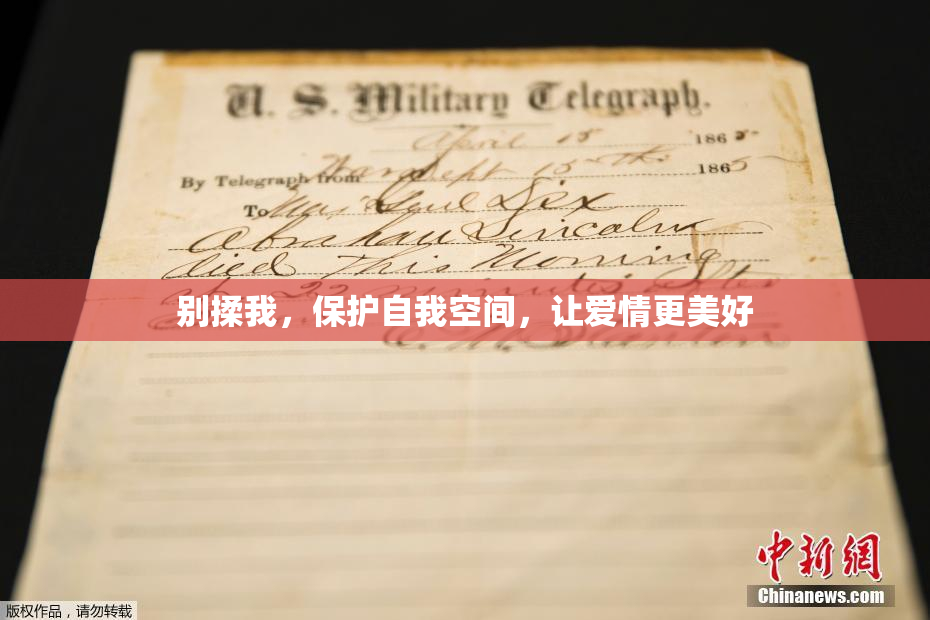 U. S. Military Telegraph.
April 15 1865
By Telegraph from War Dept 15th 1865
To Maj Genl Dix
Abraham Lincoln
died This Morning
at 22 minutes after
别揉我，保护自我空间，让爱情更美好
中新网
Chinanews.com
版权作品，请勿转载